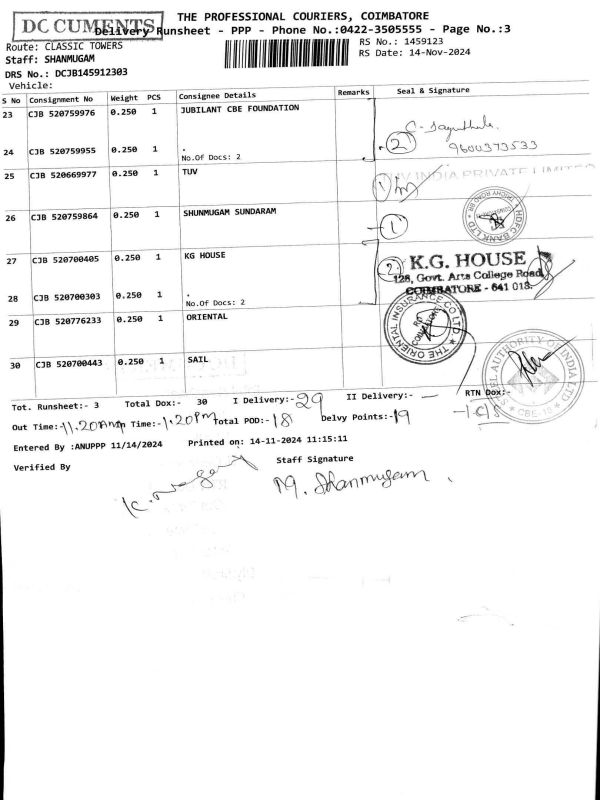 DOCUMENTS
THE PROFESSIONAL COURIERS, COIMBATORE
Delivery Runsheet - PPP - Phone No.:0422-3505555 - Page No.:3
Route: CLASSIC TOWERS
RS No.: 1459123
Staff: SHANMUGAM
RS Date: 14-Nov-2024
DRS No.: DCJB145912303
Vehicle:
S No Consignment No Weight PCS Consignee Details Remarks Seal & Signature
23 CJB 520759976 0.250 1 JUBILANT CBE FOUNDATION
24 CJB 520759955 0.250 1 .
No.Of Docs: 2
2
9600373533
25 CJB 520669977 0.250 1 TUV
TUV INDIA PRIVATE LIMITED
1
26 CJB 520759864 0.250 1 SHUNMUGAM SUNDARAM
1
HDFC BANK LTD
27 CJB 520700405 0.250 1 KG HOUSE
28 CJB 520700303 0.250 1 .
No.Of Docs: 2
2
K.G. HOUSE
128, Govt. Arts College Road
COIMBATORE - 641 018.
29 CJB 520776233 0.250 1 ORIENTAL
THE ORIENTAL INSURANCE CO LTD
30 CJB 520700443 0.250 1 SAIL
STEEL AUTHORITY OF INDIA LTD
CBE-18
Tot. Runsheet:- 3 Total Dox:- 30 I Delivery:- 29 II Delivery:- — RTN Dox:-
Out Time:- 11.20Am In Time:- 1.20Pm Total POD:- 18 Delvy Points:- 19
Entered By :ANUPPP 11/14/2024 Printed on: 14-11-2024 11:15:11
Verified By
Staff Signature
M. Shanmugam